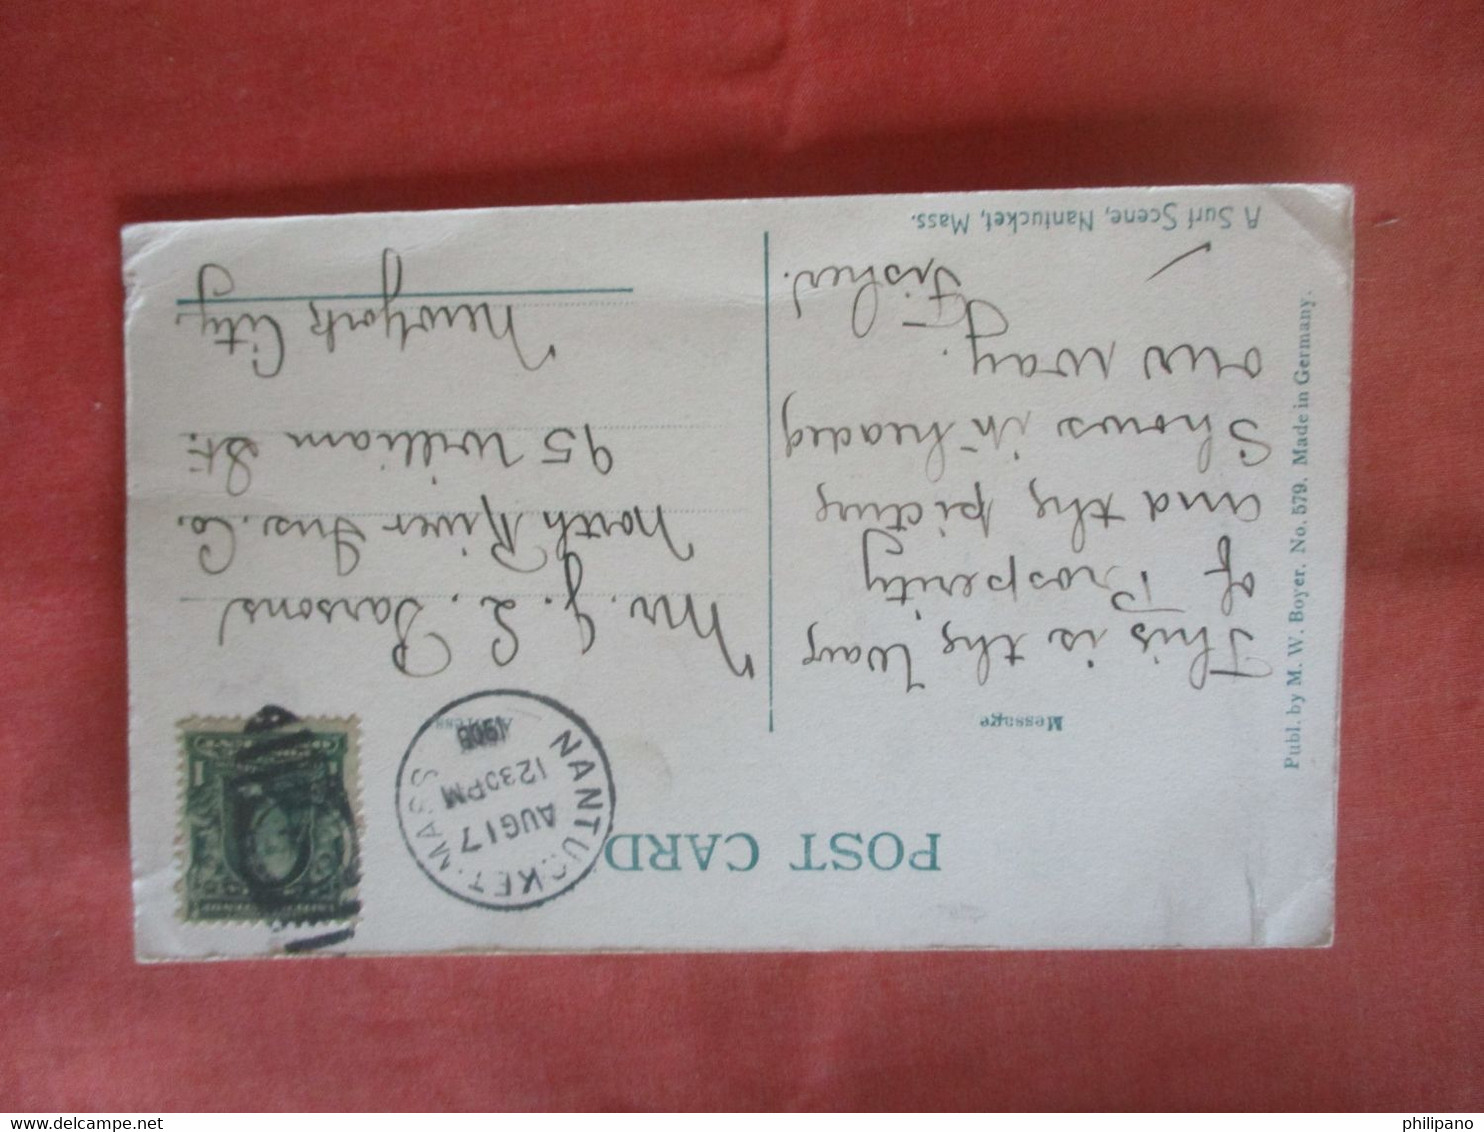 POST CARD
Message
This is the Wave
of Prosperity
and the picture
Shows it headed
our way.
Fisher.
A Surf Scene, Nantucket, Mass.
Publ. by M. W. Boyer, No. 579. Made in Germany.
NANTUCKET. MASS
AUG 17
12 30 PM
Mr. J. L. Parsons
North River Ins. Co.
95 William St.
New York City.
philipano